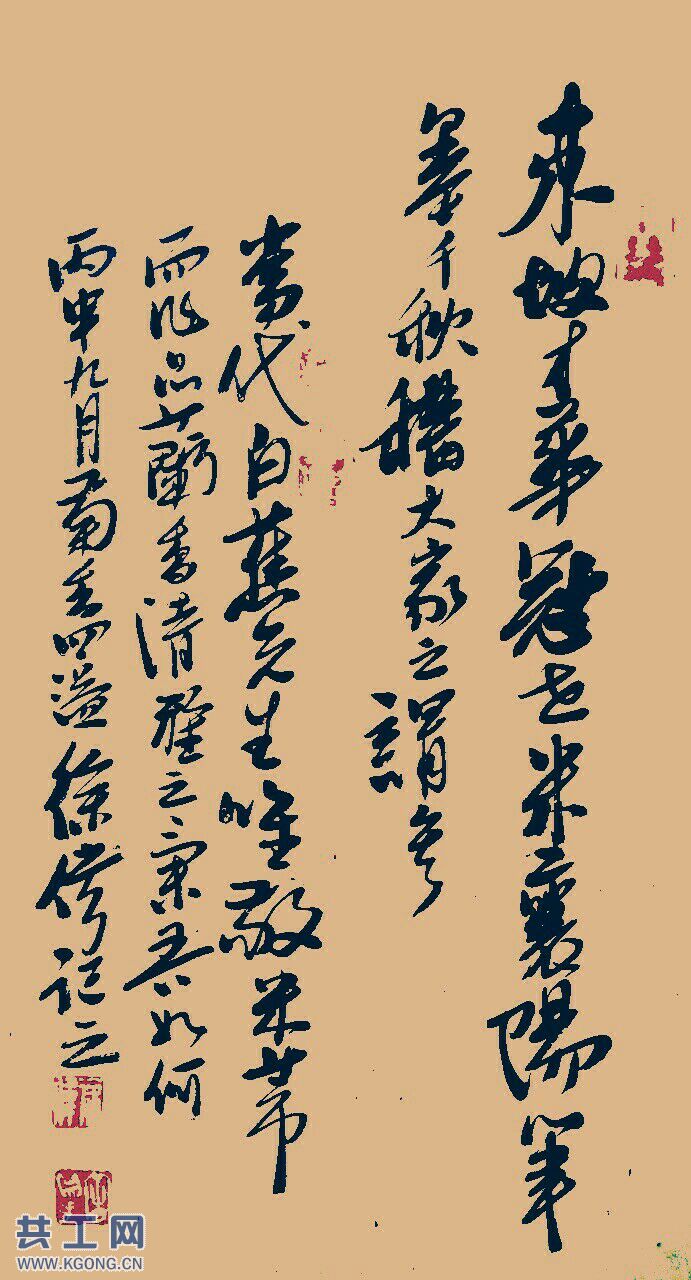 東坡才華冠世米襄陽筆
墨千秋大家之謂矣
當代白蕉先生唯敬米芾
而作品蘭香清雅之氣如何
丙申九月菊香四溢徐傳記之
共工网
WWW.KGONG.CN